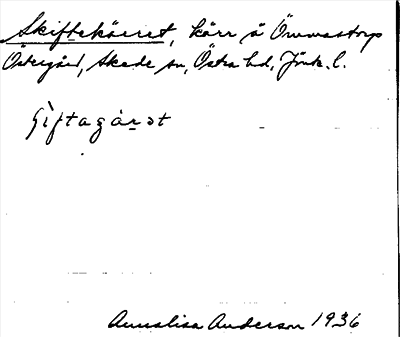 Skiftekärret, kärr å Ömmastorp
Östergård, Skede sn, Östra hd, Jönk. l.
ʃìftaçár̲ət
Annalisa Anderson 1936